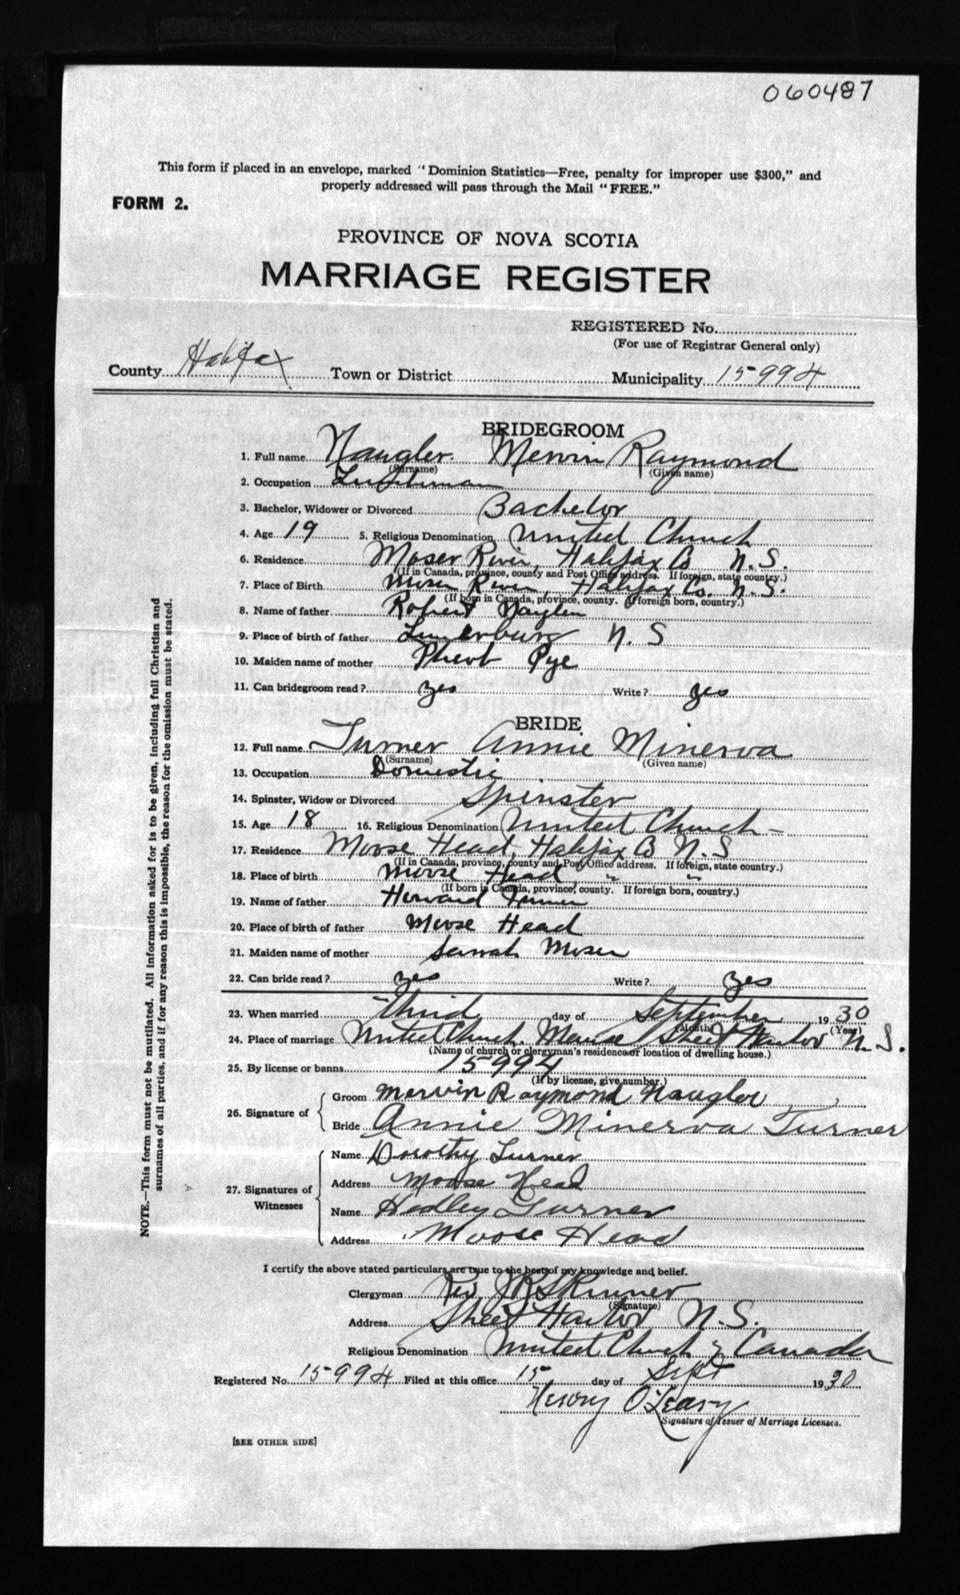 060487
This form if placed in an envelope, marked "Dominion Statistics—Free, penalty for improper use $300," and
properly addressed will pass through the Mail "FREE."
FORM 2.
PROVINCE OF NOVA SCOTIA
MARRIAGE REGISTER
REGISTERED No.
(For use of Registrar General only)
County Halifax Town or District Municipality 15994
BRIDEGROOM
1. Full name Naugler Mervin Raymond
(Surname) (Given name)
2. Occupation
3. Bachelor, Widower or Divorced Bachelor
4. Age 19 5. Religious Denomination United Church
6. Residence Moser River, Halifax Co N.S.
(If in Canada, province, county and Post Office address. If foreign, state country.)
7. Place of Birth Moser River, Halifax Co. N.S.
(If born in Canada, province, county. If foreign born, country.)
8. Name of father Robert Naugler
9. Place of birth of father Lunenburg N.S
10. Maiden name of mother Pheob Pye
11. Can bridegroom read? yes Write? yes
BRIDE
12. Full name Turner Annie Minerva
(Surname) (Given name)
13. Occupation Domestic
14. Spinster, Widow or Divorced Spinster
15. Age 18 16. Religious Denomination United Church -
17. Residence Moose Head, Halifax Co N.S
(If in Canada, province, county and Post Office address. If foreign, state country.)
18. Place of birth Moose Head " "
(If born in Canada, province, county. If foreign born, country.)
19. Name of father Howard Turner
20. Place of birth of father Moose Head
21. Maiden name of mother Sarah Moser
22. Can bride read? yes Write? yes
23. When married Third day of September 1930
(Month) (Year)
24. Place of marriage United Church Manse Sheet Harbor N.S.
(Name of church or clergyman's residence or location of dwelling house.)
25. By license or banns 15994
(If by license, give number.)
26. Signature of
Groom Mervin Raymond Naugler
Bride Annie Minerva Turner
27. Signatures of Witnesses
Name Dorothy Turner
Address Moose Head
Name Hadley Turner
Address Moose Head
I certify the above stated particulars are true to the best of my knowledge and belief.
Clergyman Rev JR Skinner
(Signature)
Address Sheet Harbor N.S.
Religious Denomination United Church of Canada
Registered No. 15994 Filed at this office 15 day of Sept 1930
Henry O'Leary
Signature of Issuer of Marriage Licenses.
[SEE OTHER SIDE]
NOTE.—This form must not be mutilated. All information asked for is to be given, including full Christian and
surnames of all parties, and if for any reason this is impossible, the reason for the omission must be stated.